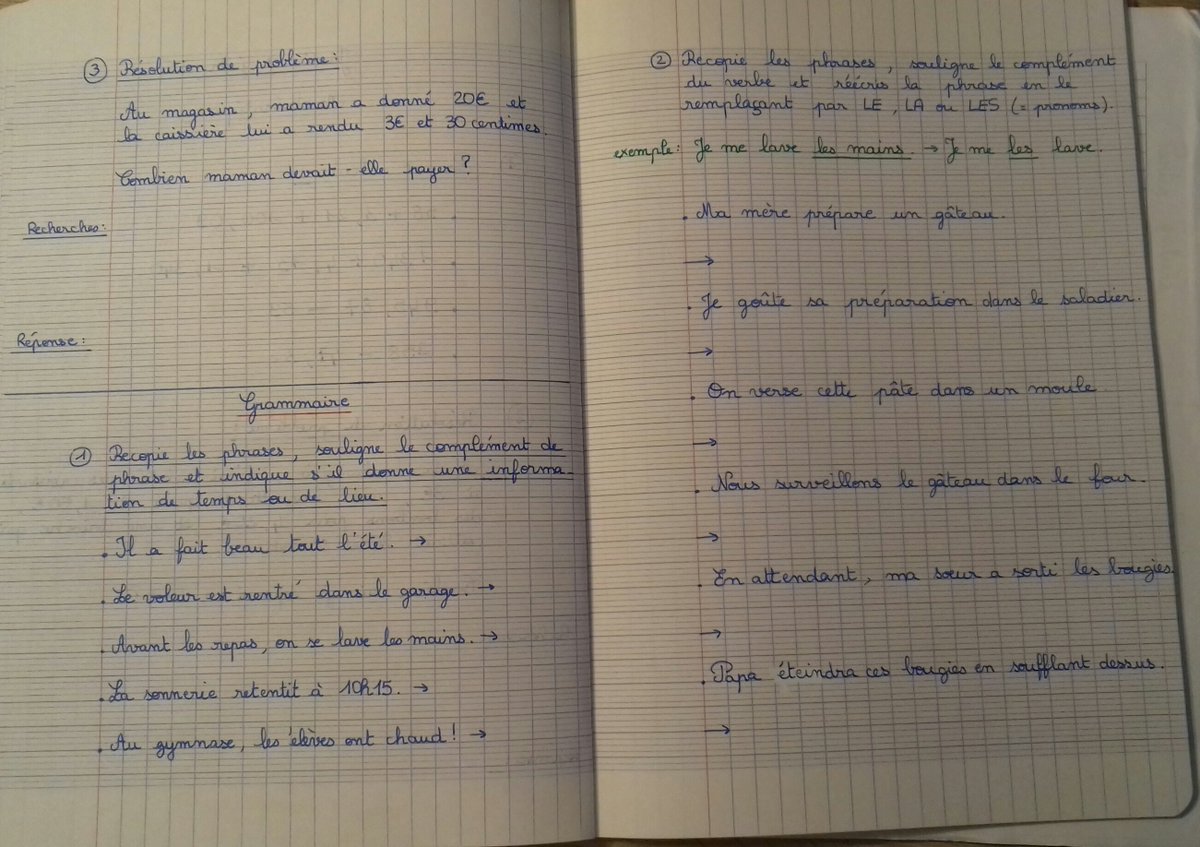 ③ Résolution de problème:
Au magasin, maman a donné 20€ et
la caissière lui a rendu 3€ et 30 centimes.
Combien maman devait-elle payer ?
Recherches:
Réponse:
Grammaire
① Recopie les phrases, souligne le complément de
phrase et indique s'il donne une informa-
tion de temps ou de lieu.
. Il a fait beau tout l'été. →
. Le voleur est rentré dans le garage. →
. Avant les repas, on se lave les mains. →
. La sonnerie retentit à 10h15. →
. Au gymnase, les élèves ont chaud ! →
② Recopie les phrases, souligne le complément
du verbe et réécris la phrase en le
remplaçant par LE, LA ou LES (= pronoms).
exemple: Je me lave les mains. → Je me les lave.
. Ma mère prépare un gâteau.
→
. Je goûte sa préparation dans le saladier.
→
. On verse cette pâte dans un moule
→
. Nous surveillons le gâteau dans le four.
→
. En attendant, ma sœur a sorti les bougies.
→
. Papa éteindra ces bougies en soufflant dessus.
→